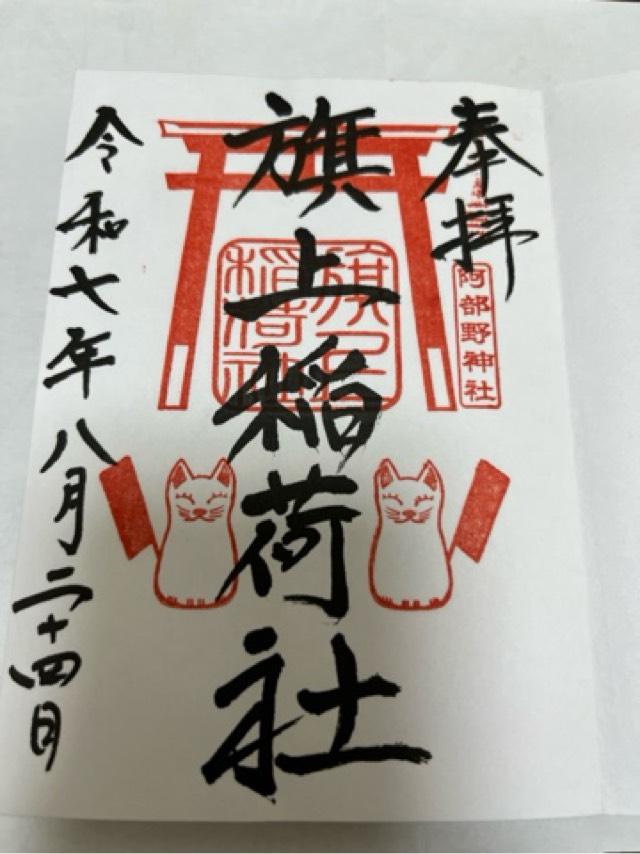 奉拝
阿部野神社
旗上稲荷社
旗上
稲荷社
令和七年八月二十四日